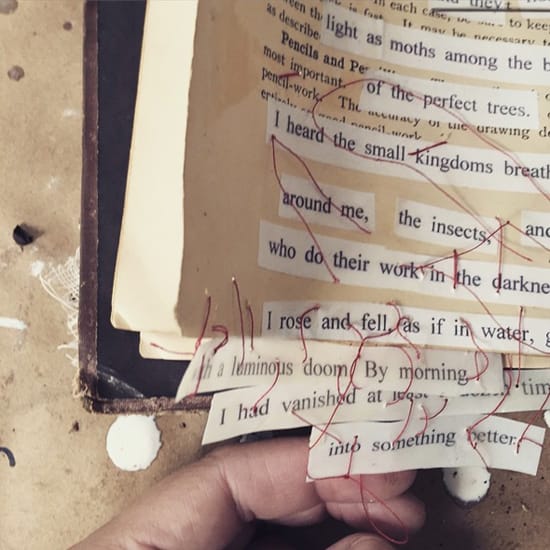 in each case,
to keep
It may be necessary t
as describe
light as moths among the b
Pencils and Pe
most important,
of the perfect trees.
pencil-work. The accuracy of the drawing de
I heard the small kingdoms breath
around me, the insects, and
who do their work in the darkne
I rose and fell, as if in water, g
a luminous doom. By morning
I had vanished at least a dozen tim
into something better.